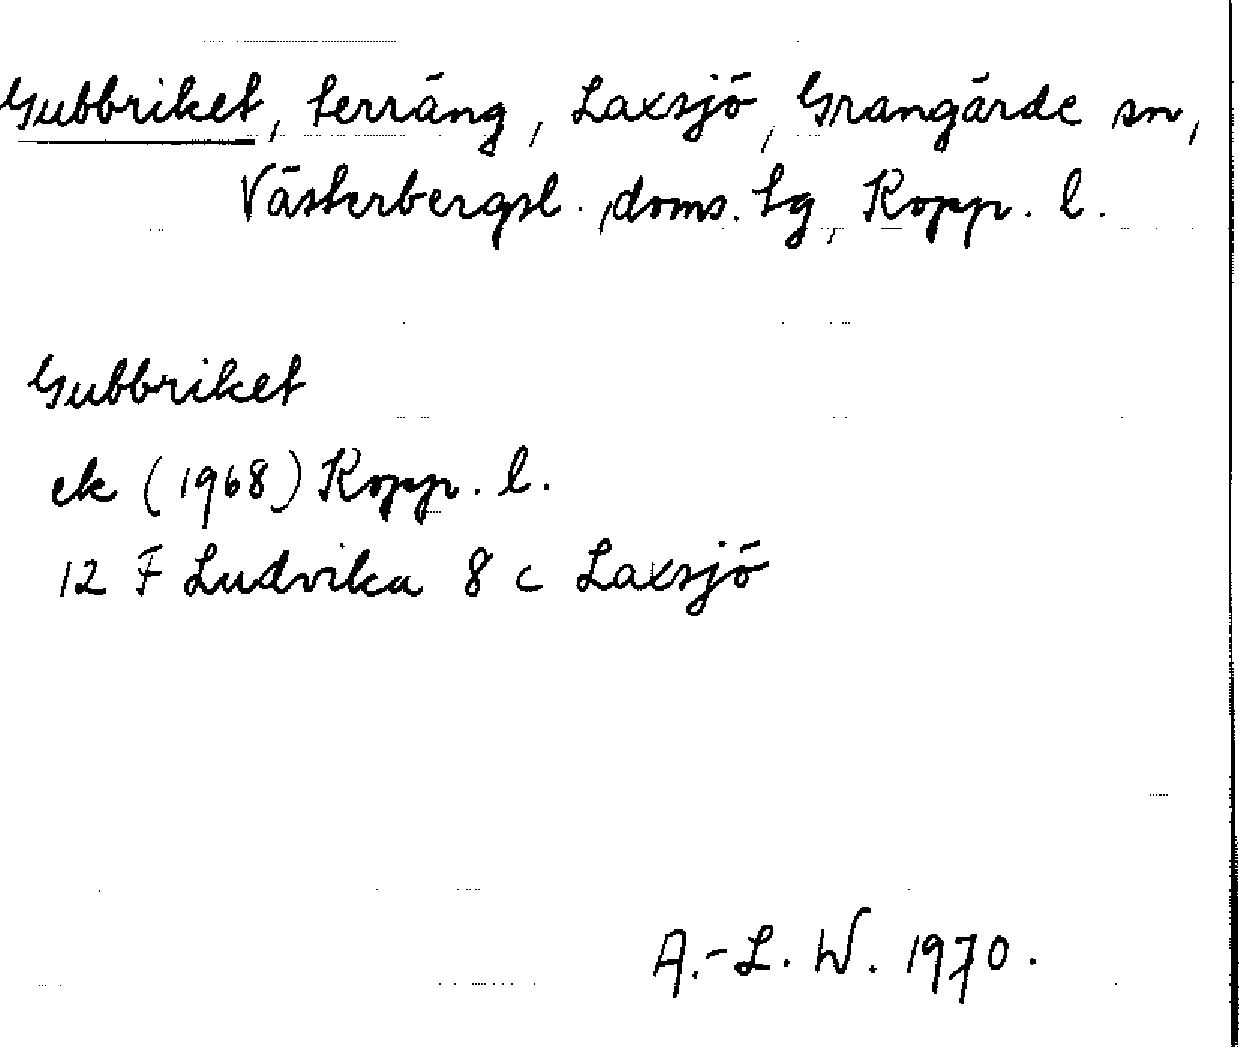 Gubbriket, terräng, Laxsjö, Grangärde sn,
Västerbergsl. doms. tg, Kopp. l.
Gubbriket
ek (1968) Kopp. l.
12 F Ludvika 8 c Laxsjö
A.-L. W. 1970.